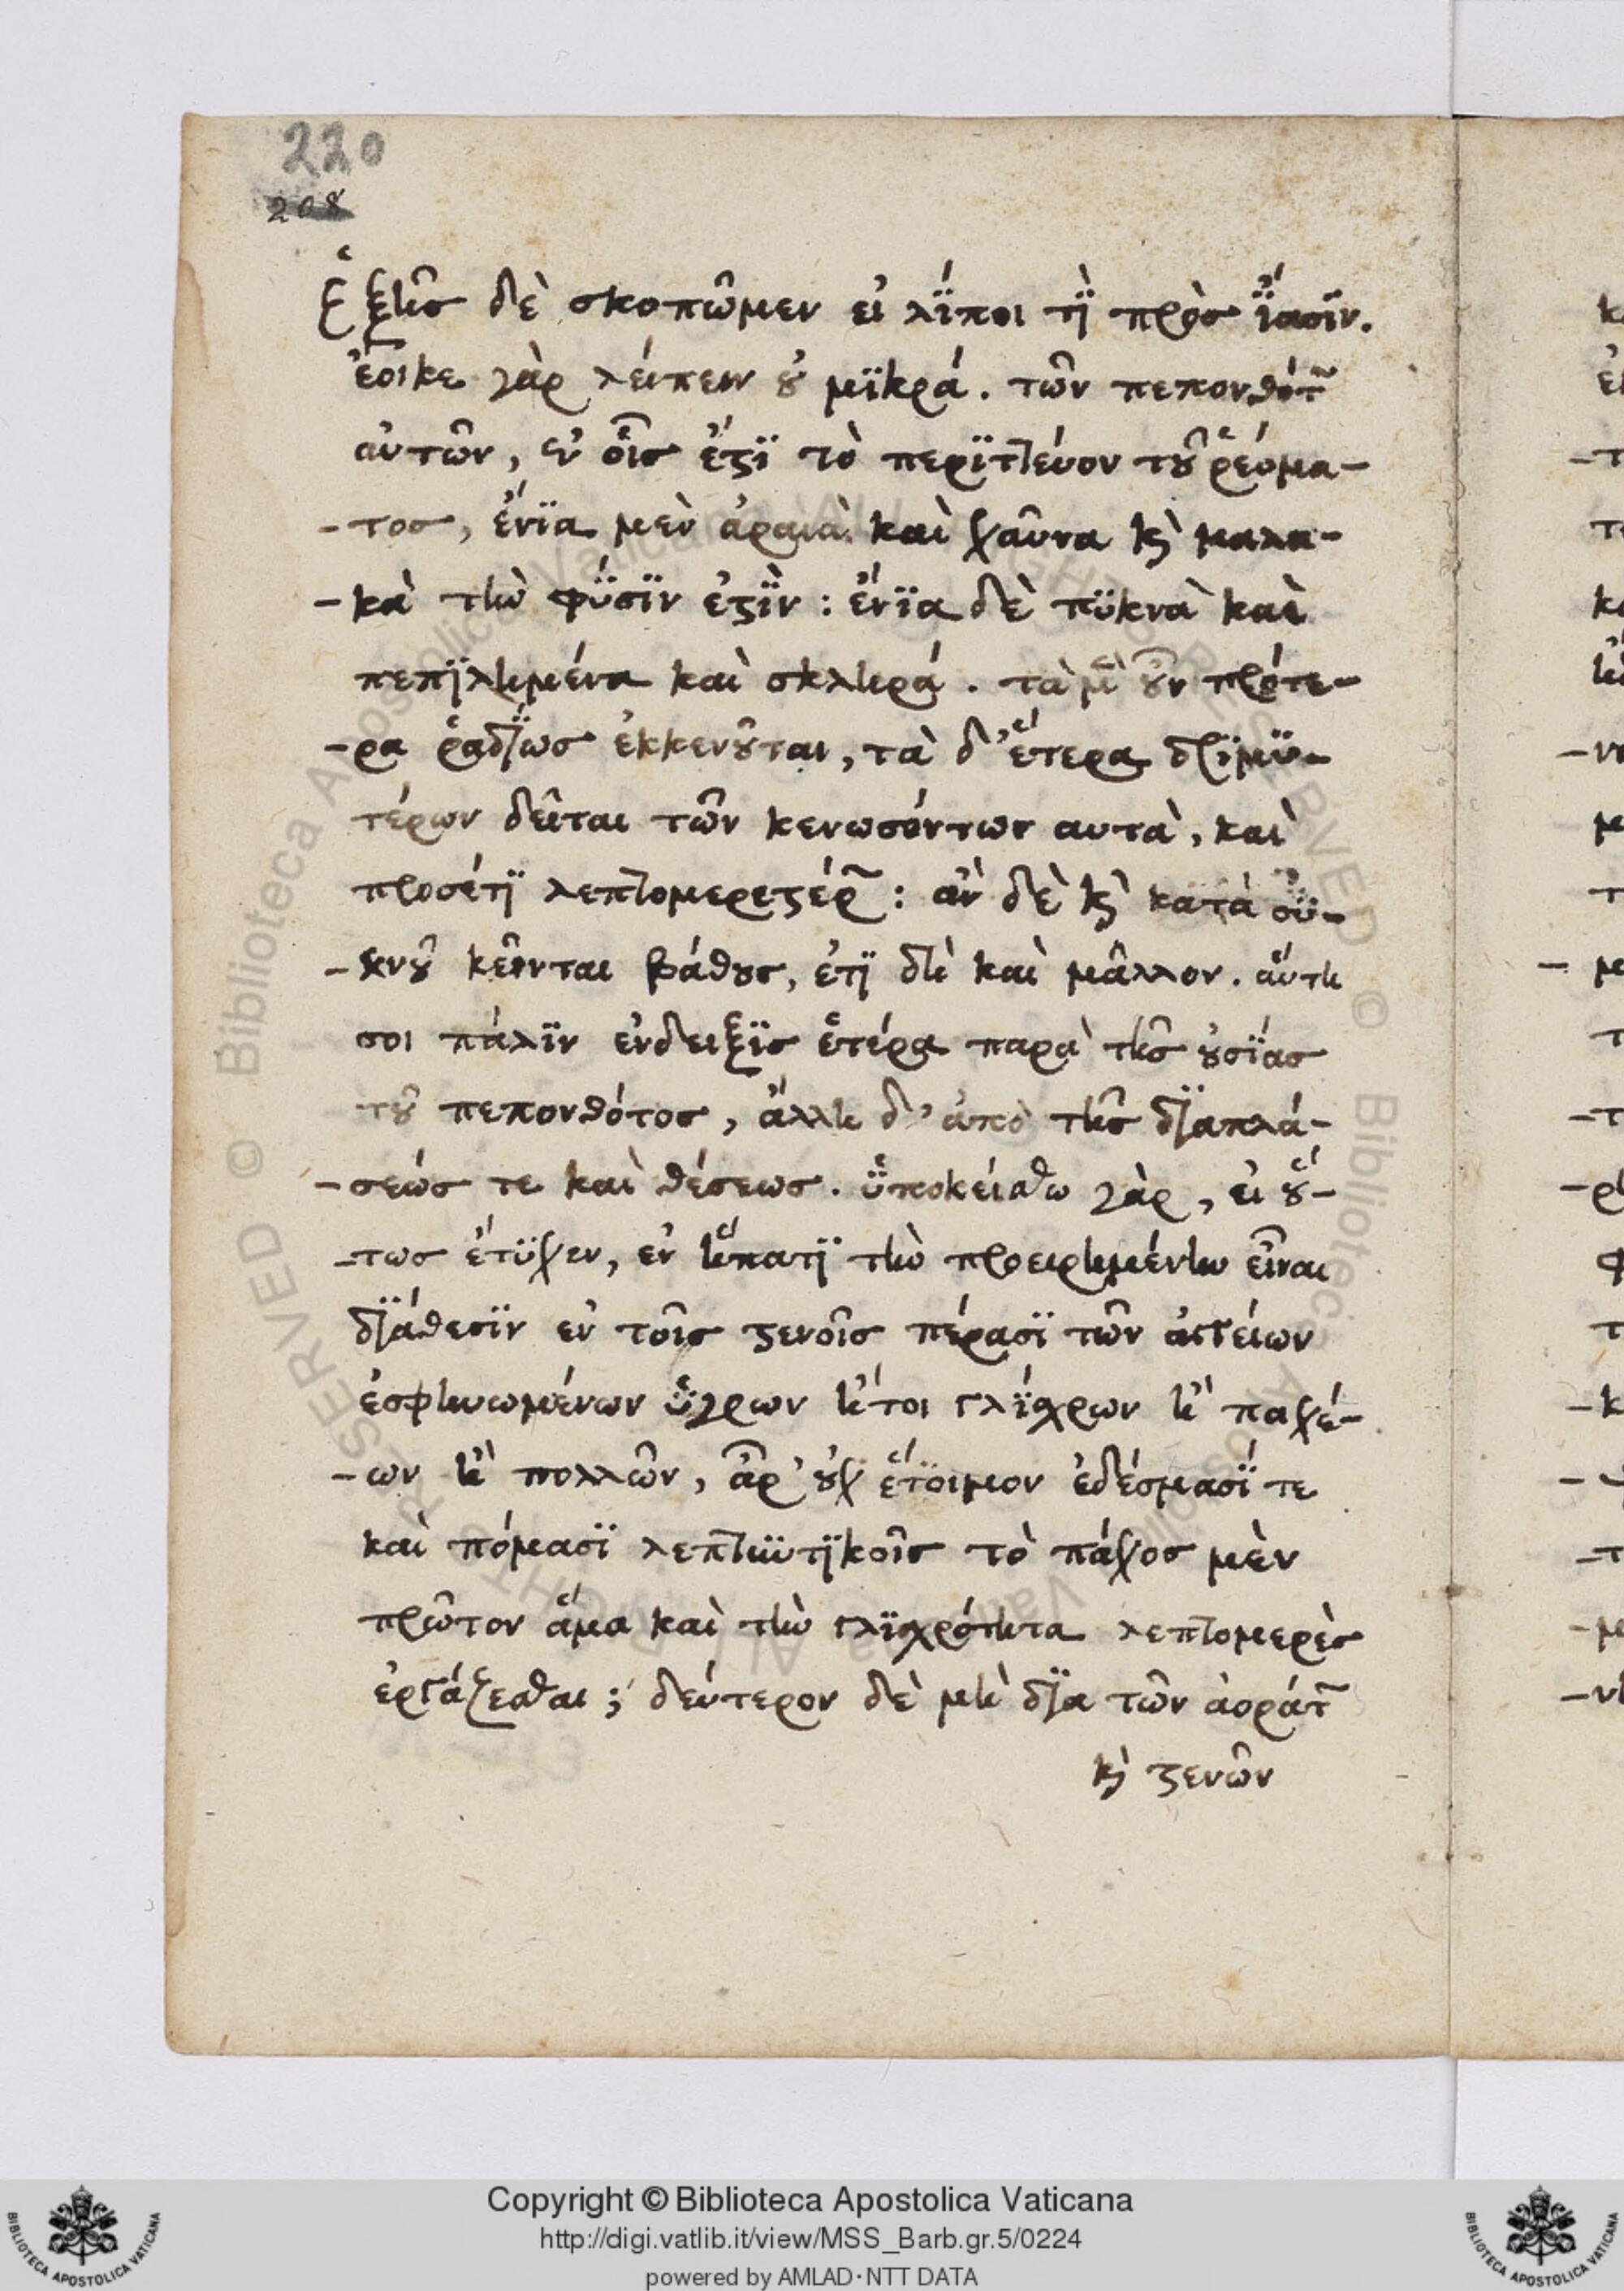 220
208
Ἑξῆς δὲ σκοπῶμεν εἰ λΐποι τῒ πρὸς ἵασϊν.
ἔοικε γὰρ λείπειν οὐ μϊκρά. τῶν πεπονθότ~
αὐτῶν, ἐν οἷς ἔστϊ τὸ περϊττεύον τοῦ ῥεύμα-
-τος, ἔνϊα μὲν ἀραιὰ καὶ χαῦνα κ̀ μαλα-
-κὰ τὴν φύσϊν ἐστῒν : ἔνϊα δὲ πϋκνὰ καὶ
πεπϊλημένα καὶ σκληρά. τὰ μὲ οὖν πρότε-
-ρα ῥαδΐως ἐκκενοῦται, τὰ δ' ἕτερα δρϊμϋ-
τέρων δεῖται τῶν κενωσόντων αυτὰ, καὶ
προσέτϊ λεπτομερεστέρ~ : ἂν δὲ κ̀ κατὰ σϋ-
-χνοῦ κέωνται βάθους, ἔτϊ δὴ καὶ μᾶλλον. αὕτη
σοι πάλϊν ἐνδειξϊς ἑτέρα παρὰ τῆς οὐσΐας
τοῦ πεπονθότος, ἄλλη δ' ἀπὸ τῆς δϊαπλά-
-σεώς τε καὶ θέσεως. ὑποκείσθω γὰρ, εἰ οὕ-
-τως ἔτϋχεν, ἐν ἥπατϊ τὴν προειρημένην εἶναι
δϊάθεσϊν ἐν τοῖς στενοῖς πέρασϊ τῶν ἀγγείων
ἐσφηνωμένων ὕγρων ἤτοι γλΐσχρων ἢ παχέ-
-ων ἢ πολλῶν, ἆρ' οὐχ ἕτοιμον ἐδέσμασΐ τε
καὶ πόμασϊ λεπτϋντϊκοῖς τὸ πάχος μὲν
πρῶτον ἅμα καὶ τὴν γλϊσχρότητα λεπτομερὲς
ἐργάζεσθαι; δεύτερον δὲ μὴ δϊα τῶν ἀοράτ~
κ̀ στενῶν
Copyright © Biblioteca Apostolica Vaticana
http://digi.vatlib.it/view/MSS_Barb.gr.5/0224
powered by AMLAD·NTT DATA